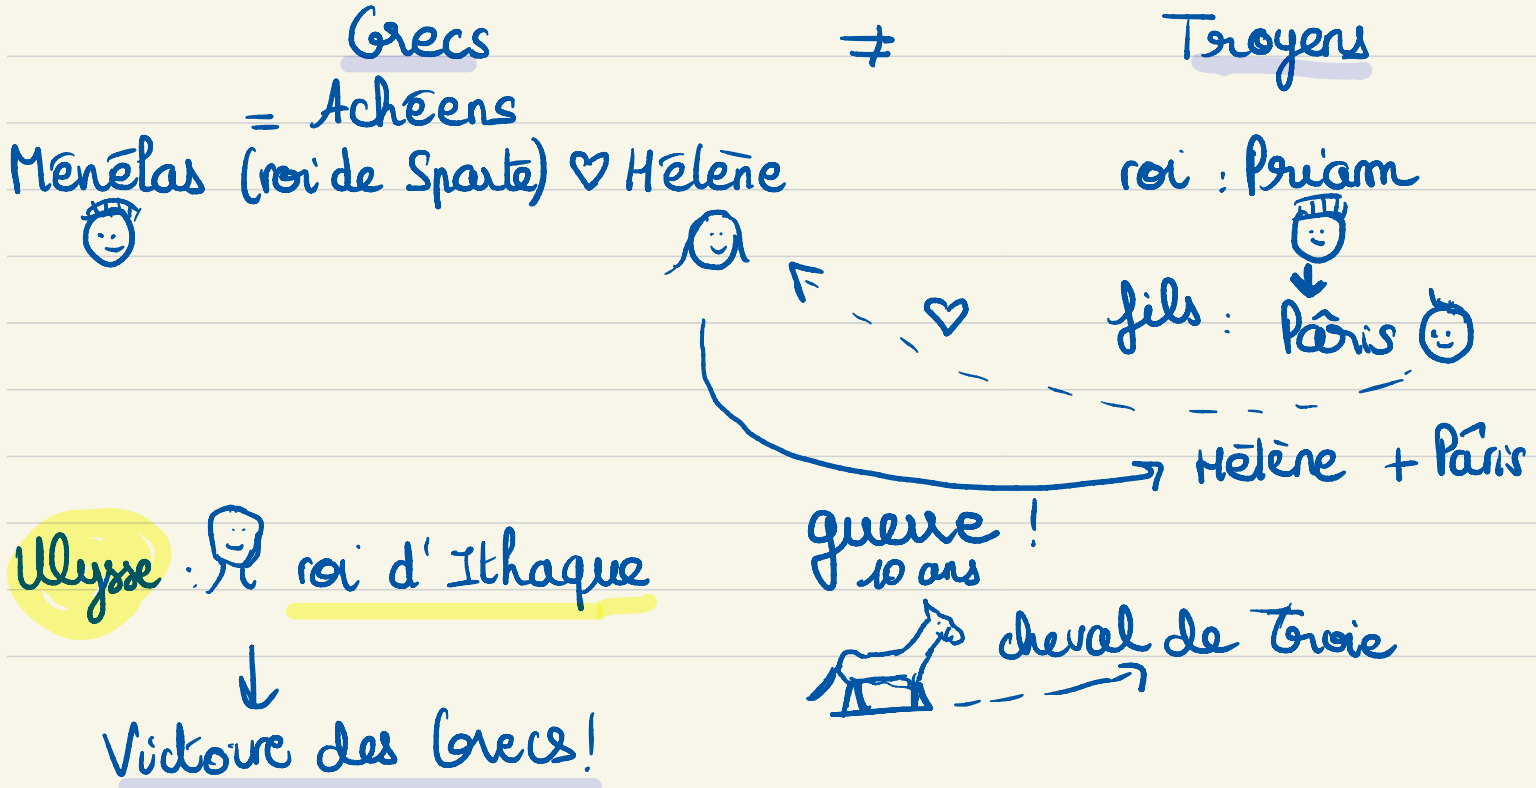 Grecs ≠ Troyens
= Achéens
Ménélas (roi de Sparte) ♡ Hélène
roi : Priam
fils : Pâris
♡
Hélène + Pâris
guerre !
10 ans
Ulysse : roi d'Ithaque
cheval de Troie
Victoire des Grecs !